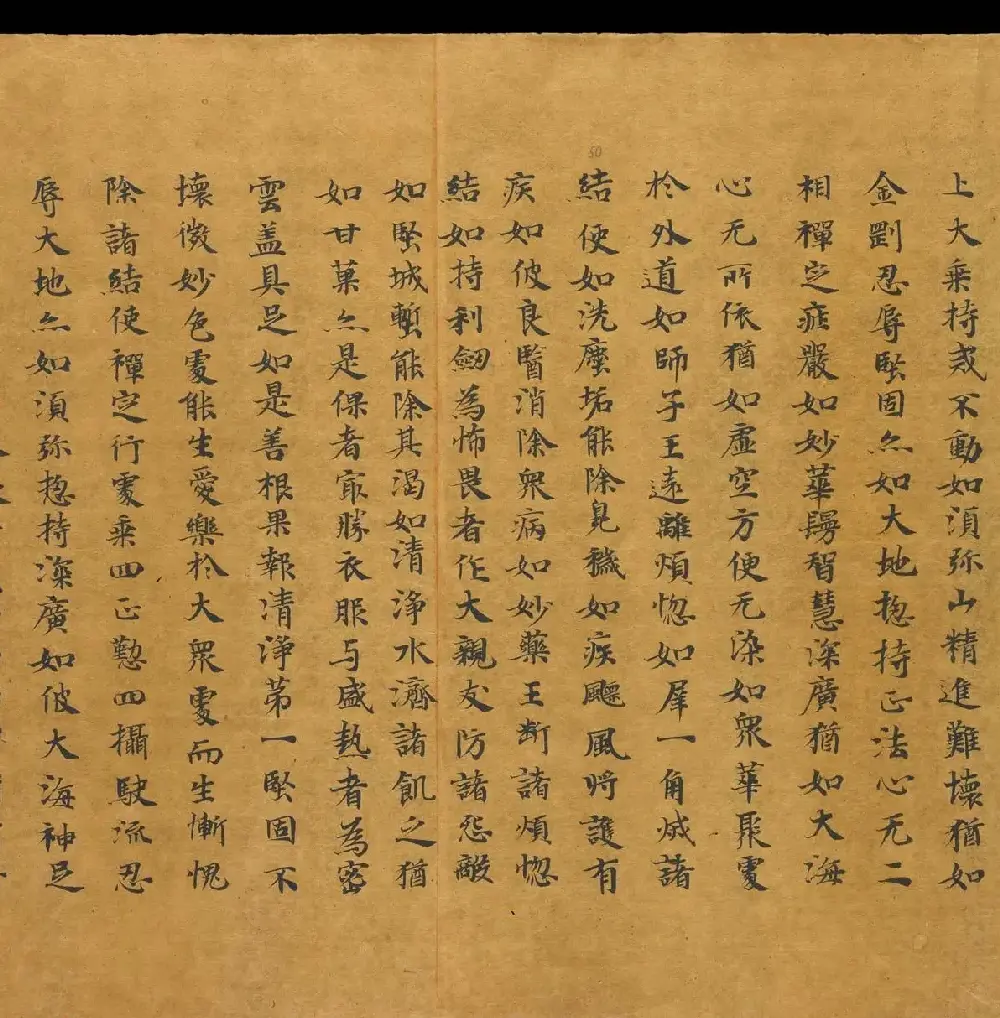 上大乗持戒不動如湏弥山精進難壞猶如
金剛忍辱堅固亦如大地揔持正法心无二
相禪定疵嚴如妙華鬘智慧深廣猶如大海
心无所依猶如虛空方便无染如衆華聚處
於外道如師子王遠離煩惚如犀一角烕諸
結使如洗塵垢能除臭穢如疾飈風將護有
疾如彼良醫消除衆病如妙藥王断諸煩惚
結如持利劔為怖畏者作大親友防諸怨敵
如堅城塹能除其渴如清浄水濟諸飢之猶
如甘菓亦是倮者㝡勝衣服与盛熱者為密
雲盖具足如是善根果報清浄苐一堅固不
壞微妙色處能生愛樂於大衆處而生慚愧
除諸結使禪定行處乗四正懃四攝駛流忍
辱大地亦如湏弥揔持深廣如彼大海神足